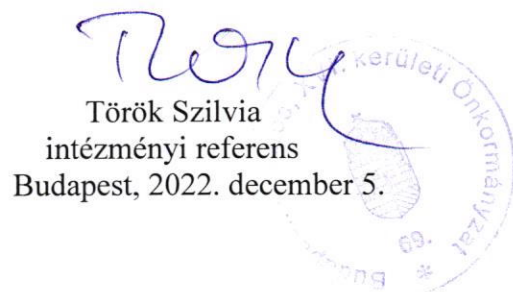 Török Szilvia
intézményi referens
Budapest, 2022. december 5.
kerületi Önkormányzat
69.